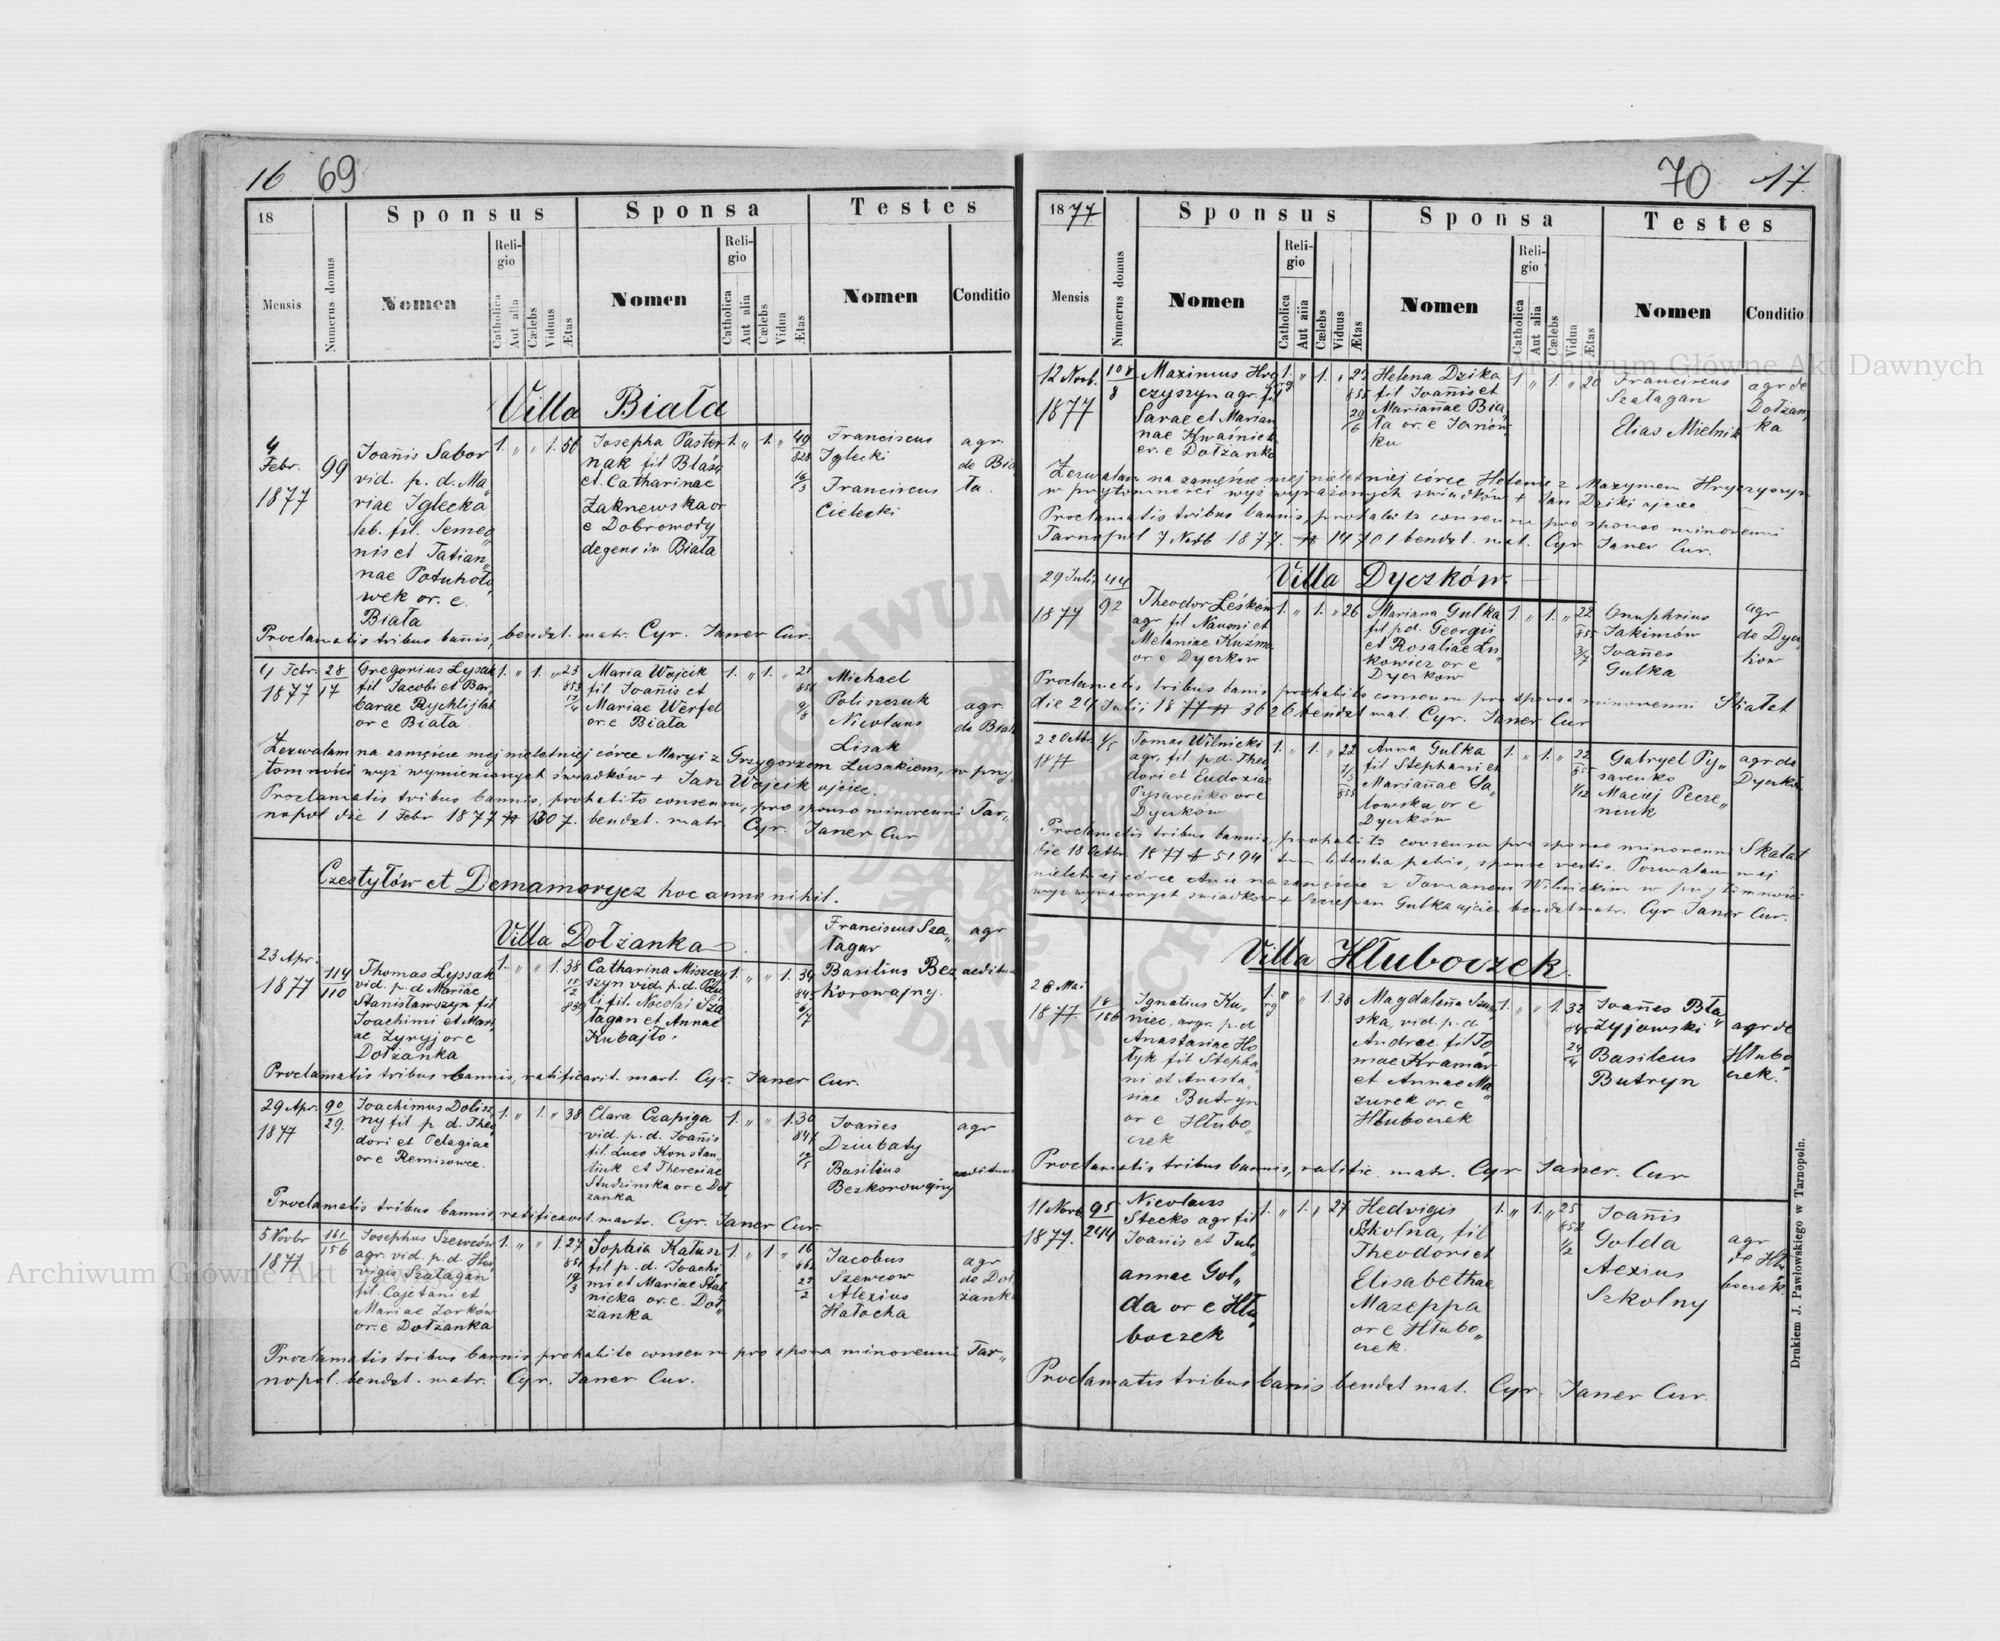 16 69
18
Sponsus
Sponsa
Testes
Mensis
Numerus domus
Nomen
Religio
Catholica
Aut alia
Cælebs
Viduus
Ætas
Nomen
Religio
Catholica
Aut alia
Cælebs
Vidua
Ætas
Nomen
Conditio
Villa Biała
4
Febr.
1877
99
Joannis Sabor
vid. p. d. Ma„
riae Iglecka
lab. fil. Semeo
nis et Tatian„
nae
wek or. e.
Biała
1. „ „ 1. 56
Josepha Paster
nak fil Blasii
et Catharinae
Zaknewska or
e Dobrowody
degens in Biała
1. „ 1. „ 49
828
16/3
Franciscus
Iglecki
Franciscus
Cielecki
agr.
de Bia
ła.
Proclamatis tribus bannis, bendxt. matr. Cyr. Janer Cur.
4 Febr.
1877
28
17
Gregorius Lysak
fil Jacobi et Bar„
barae Rychlij lab
or e Biała
1. „ 1. „ 23
853
Maria Wojcik
fil Joannis et
Mariae Werfel
or. e Biała
1. „ 1. „ 21
Michael
Poliszczuk
Nicolaus
Lisak
agr.
de Biał
Zezwalam na zamęście mej nieletniej córce Maryi z Grzegorzem Lusakiem, w przy
tomności wyż wymienionych świadków + Jan Wojcik ojciec.
Proclamatis tribus bannis, prohabito consensu, pro sponso minorenni Tar„
nopol die 1 Febr 1877 N 1307. bendxt. matr. Cyr. Janer Cur
Czestyłów et Demamorycz hoc anno nihil.
Villa Dołżanka
23 Apr.
1877
114
110
Thomas Lyssak
vid. p. d Mariae
Stanisławszyn fil
Joachimi et Mari„
ae Zyryj or e
Dołżanka
1. „ „ 1. 38
839
Catharina Miszczy
szyn vid. p. d.
fil. Nicolaj Sza
łagan et Annae
Kubajło.
1. „ „ 1. 34
Franciscus Sza„
łagan
Basilius Bez
Korowajny.
agr
aedituus
Proclamatis tribus bannis, ratificavit. mart. Cyr. Janer Cur.
29 Apr.
1877
90
29.
Joachimus Dolisz
ny fil p d. Theo
dori et Pelagiae
or e Remizowce.
1. „ 1. „ 38
Clara Czapiga
vid. p. d. Joannis
fil. Luco Konstan„
tiuk et Theresiae
Studzinska or e Doł
żanka
1. „ „ 1. 30
847
Joannes
Dziubaty
Basilius
Bezkorowajny
agr
aedituus
Proclamatis tribus bannis, ratificavit. martr. Cyr. Janer Cur.
5 Novbr
1877
161
156
Josephus Szewców
agr. vid. p. d. Hed
vigis Szałagan
fil. Cajetani et
Mariae Zorków
or. e Dołżanka
1. „ „ 1. 27
19/3
Sophia Kałusz
fil p. d. Joachi
mi et Mariae Stad
nicka or. e. Doł„
żanka
1. „ 1 „ 16
861
22/2
Jacobus
Szewcow
Alexius
Hałocha
agr
de Doł
żanka
Proclamatis tribus bannis prohabito consensu pro sponsa minorenni Tar„
nopol. bendxt. matr. Cyr. Janer Cur.
70 17.
1877
Sponsus
Sponsa
Testes
Mensis
Numerus domus
Nomen
Religio
Catholica
Aut alia
Cælebs
Viduus
Ætas
Nomen
Religio
Catholica
Aut alia
Cælebs
Vidua
Ætas
Nomen
Conditio
12 Novb.
1877
108
8
Maximus Hry
czyszyn agr. fil
Sarae et Marian
nae Kwaśnick
or. e Dołżanka
1. „ 1. „ 22
855
29/6
Helena Dzika
fil Joannis et
Mariannae Bia„
ła or. e Janów„
ku
1. „ 1. „ 20
Franciscus
Szałagan
Elias Mielnik
agr de
Dołżan„
ka
Zezwalam na zamęście mej nieletniej córce Helenie z Maxymem Hryczyszyn
w przytomności wyż wyrażonych świadków + Jan Dziki ojciec
Proclamatis tribus bannis, prohabito consensu pro sponso minorenni
Tarnopol 7 Novb 1877. N 14701 bendxt. mat. Cyr Janer Cur.
Villa Dyczków.
29 Julij
1877
44
92
Theodor Leśków
agr fil Naumi et
Melaniae Kuźma
or e Dyczkow
1. „ 1. „ 26
Mariana Gulka
fil p d. Georgii
et Rosaliae Lu„
kowicz or e
Dyczkow
1. „ 1. „ 22
855
3/7
Onuphrius
Jakimów
Joannes
Gulka
agr
de Dycz„
kow
Proclamatis tribus banis prohabito consensu pro sponsa minorenni Skałat
die 24 Julij 1877 N 3626 bendxt mat. Cyr. Janer Cur
22 Octbr.
1877
Tomas Wilnicki
agr, fil p d. Theo„
dori et Eudoxiae
Pysareńko or e
Dyczków
1. „ 1. „ 22
1/3
855
Anna Gulka
fil Stephani et
Mariannae Sa„
łowska or e
Dyczków
1. „ 1. „ 22
855
1/12
Gabryel Py„
sarenko
Maciej Pecze„
niuk
agr de
Dyczków
Proclamatis tribus bannis, prohabito consensu pro sponso minorenni Skałat
die 18 Octbr 1877 N 5194 tum licentia patris, sponsae vestis. Pozwalam mej
nieletniej córce Annie na zamęście z Tomaszem Wilnickim w przytomności
wyż wyrażonych świadków + Szczepan Gulka ojciec bendxt matr. Cyr Janer Cur.
Villa Hłuboczek.
28 Mai
1877.
18
156
Ignatius Ku„
niec, argr. p. d
Anastasiae Ho
łyk fil Stepha„
ni et Anasta„
siae Butryn
or e Hłubo„
czek
1. „ „ 1. 38
Magdalena Szum
ska, vid. p. d.
Andreae fil To
mae Kramar
et Annae Ma„
zurek or. e
Hłuboczek
1. „ „ 1. 32
845
24/4
Joannes Bła„
żyjowski
Basileus
Butryn
agr de
Hłubo
czek.
Proclamatis tribus bannis, ratific. matr. Cyr Janer. Cur
11 Novb
1877.
95
244
Nicolaus
Stecko agr fil
Joannis et Juli„
annae Gol„
da or e Hłu„
boczek
1. „ 1. „ 27
Hedvigis
Szkolna, fil
Theodori et
Elisabethae
Mazeppa
or e Hłubo„
czek.
1. „ 1. „ 25
852
1/2
Joannis
Golda
Alexius
Szkolny
agr
de Hłu
boczek.
Proclamatis tribus banis bendxt mat. Cyr. Janer Cur.
Drukiem J. Pawłowskiego w Tarnopolu.
Archiwum Główne Akt Dawnych
Archiwum Główne Akt Dawnych
ARCHIWUM GŁÓWNE AKT DAWNYCH